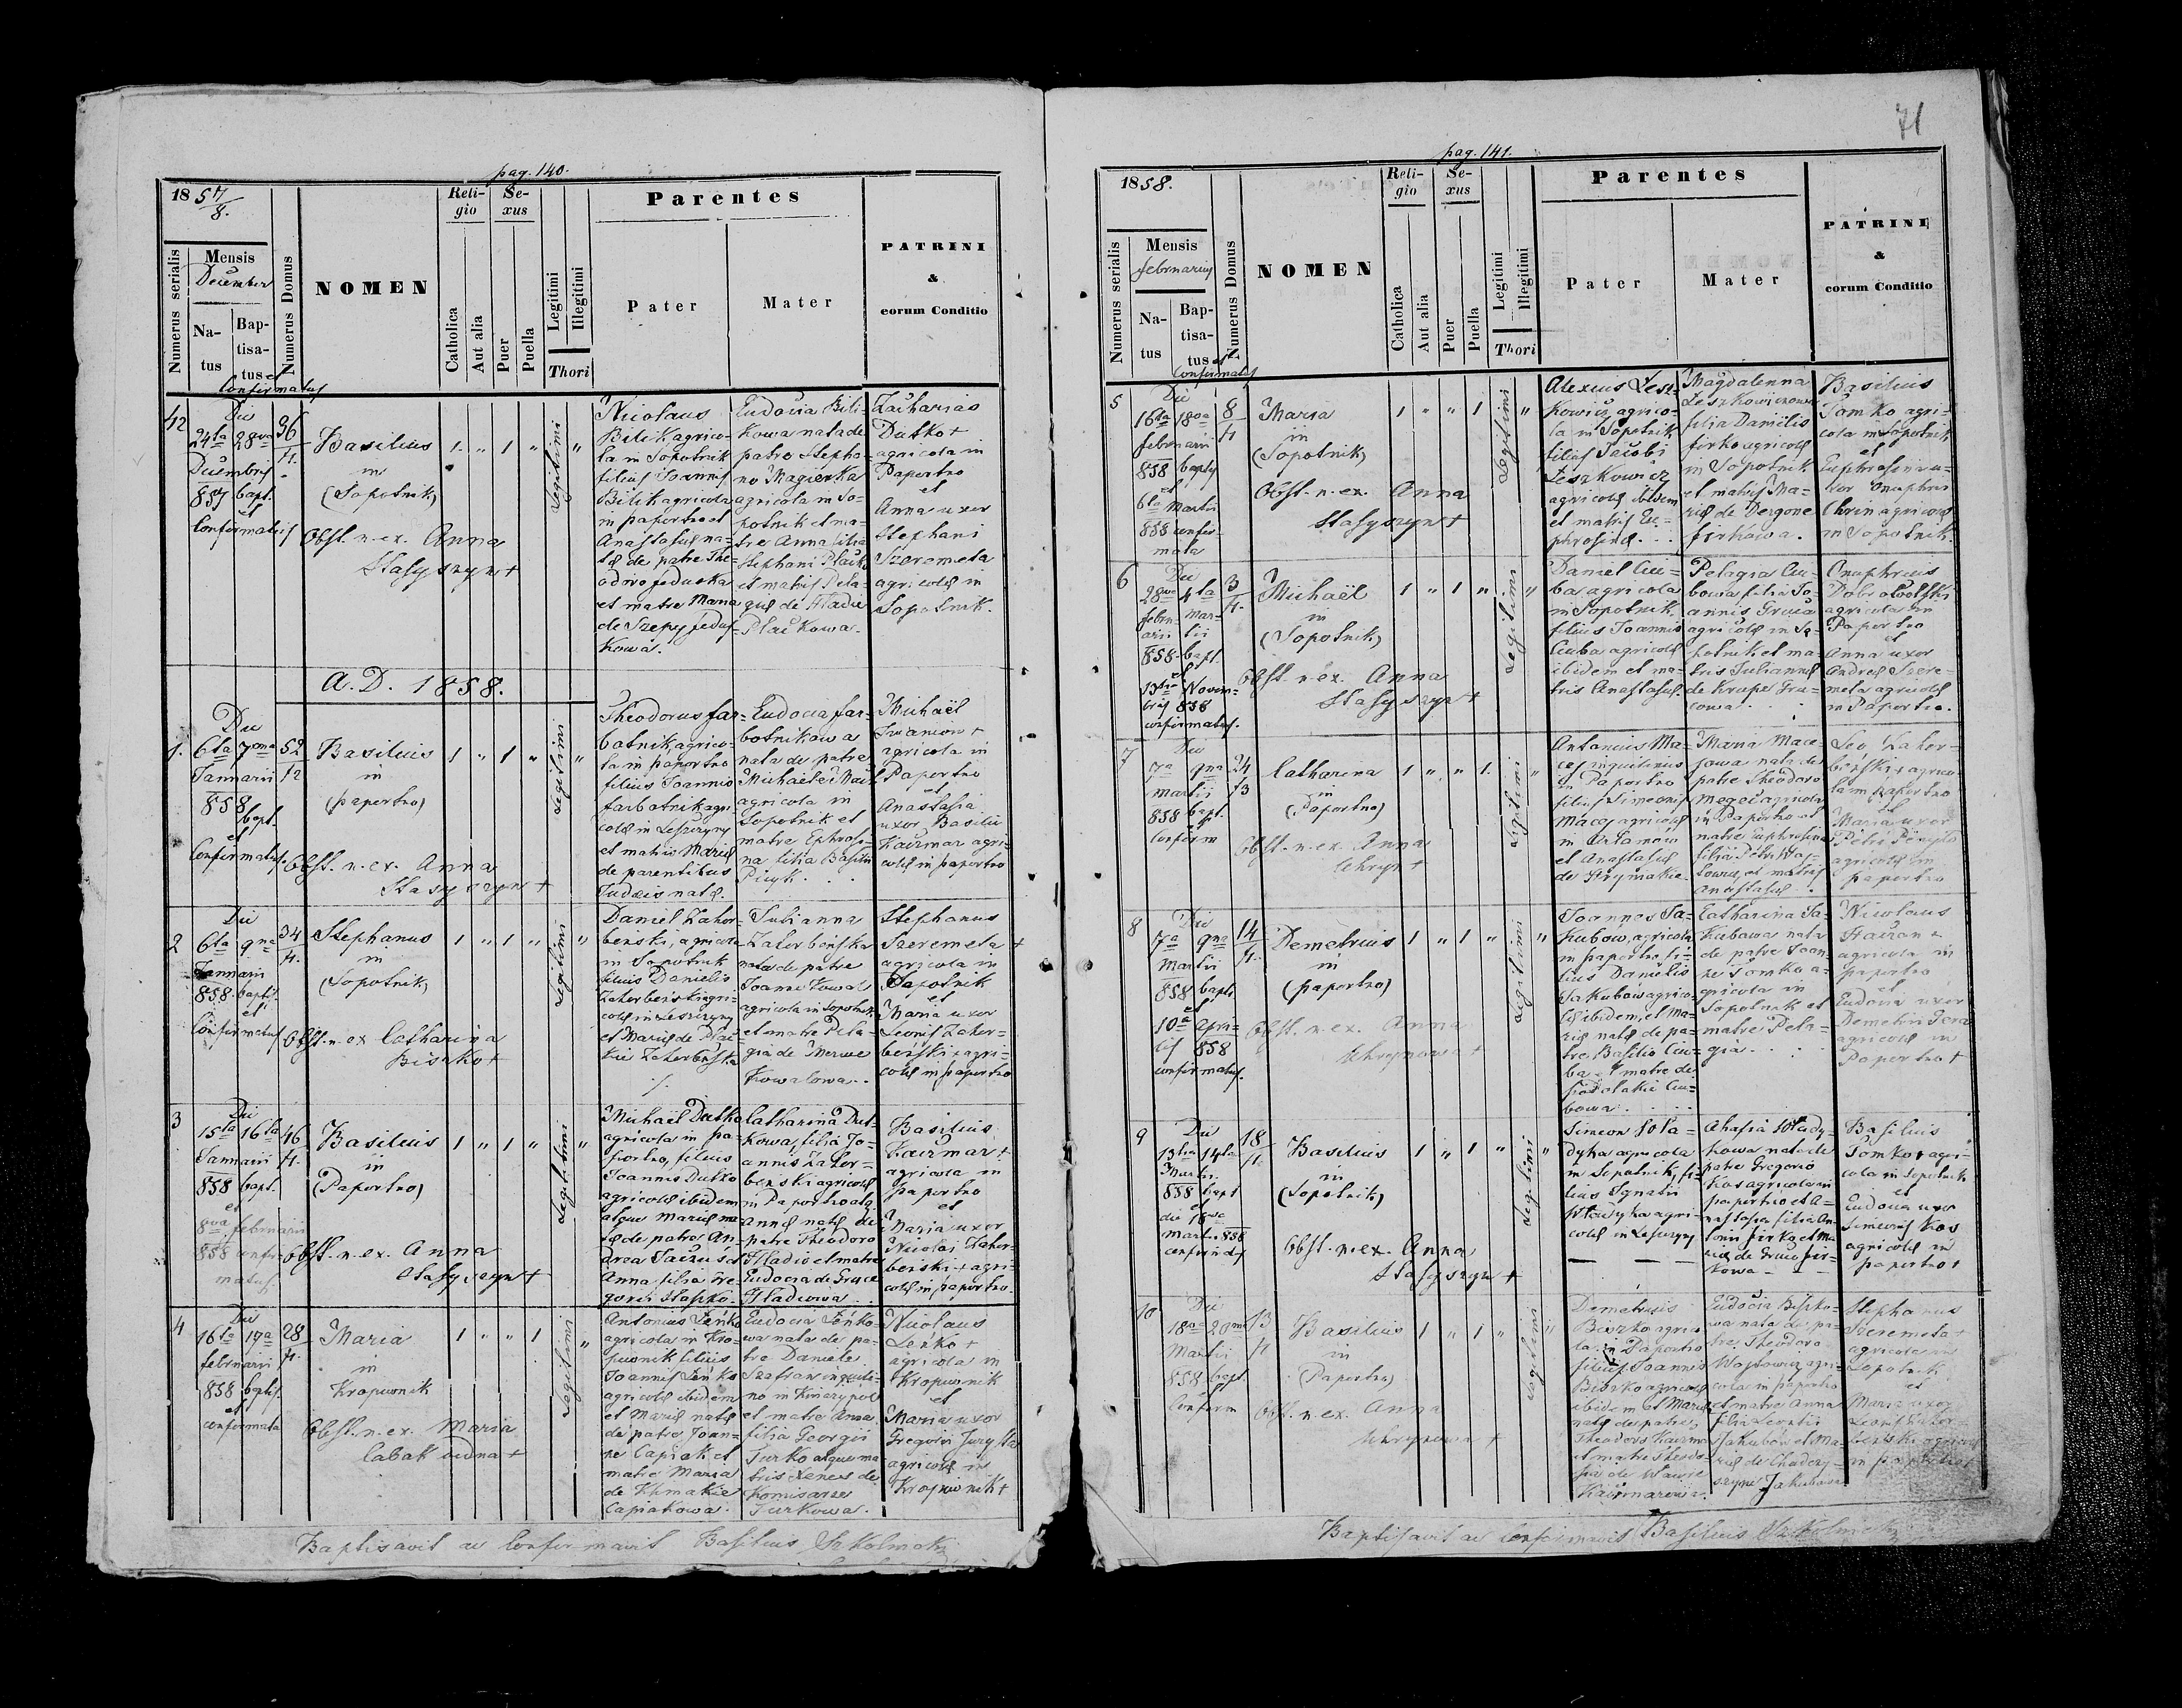 pag. 140.
18 57/8.
Numerus serialis
Mensis
December
Natus
Baptisatus et
Confirmatus
Numerus Domus
NOMEN
Religio
Catholica
Aut alia
Sexus
Puer
Puella
Legitimi
Illegitimi
Thori
Parentes
Pater
Mater
PATRINI
&
eorum Conditio
42
Die
24ta 28va
Decembris
857 bapt.
et
Confirmatus
36
Basilius
in
(Sopotnik)
Obst. n. ex. Anna
Stasyszyn +
1 " 1 "
Legitimi
"
Nicolaus
Bilik agrico-
la in Sopotnik
filius Joannis
Bilik agricola
in paportno et
Anastasiæ na-
tæ de patre The-
odoro
et matre Maria
Kowa.
Eudocia Bili-
kowa nata de
patre Stepha-
no Magierka
agricola in So-
potnik et ma-
tre Anna filia
Stephani
et matris Pela-
giæ de Hladie
Zacharias
Dutko +
agricola in
Paportno
et
Anna uxor
Stephani
Szeremeta
agricolæ in
Sopotnik.
A. D. 1858.
1.
Die
6ta 7ma
Januarii
858
bapt.
et
Confirmatus.
52
Basilius
in
(paportno)
Obst. n. ex. Anna
Stasyszyn +
1 " 1 "
Legitimi
"
Theodorus Far-
botnik agrico-
la in paportno
filius Joannis
Farbotnik agri-
colæ in Leszczyny
et matris Mariæ
de parentibus
Judæis natæ.
Eudocia Far-
botnikowa
nata de patre
Michaele
agricola in
Sopotnik et
matre Ephrosi-
na filia Basilii
Michaël
Iwanow +
agricola in
Paportno
et
Anastasia
uxor Basilii
Kaczmar agri-
colæ in paportno
2
Die
6ta 9na
Januarii
858 bapt.
et
Confirmatus
34
Stephanus
in
(Sopotnik)
Obst. n. ex Catharina
Biszko +
1 " 1 "
Legitimi
"
Daniel Zaher-
beński, agricola
in Sopotnik
filius Danielis
Zaherbeński agri-
colæ in Leszczyny
et Mariæ de
Zaherbeńska
Julianna
Zaherbeńska
nata de patre
Joanne Kowal
agricola in Sopotnik
et matre Pela-
gia de
Kowalowa.
Stephanus
Szeremeta +
agricola in
Sopotnik
et
Maria uxor
Leonis Zaher-
beński + agri-
colæ in paportno
3
Die
15ta 16ta
Januarii
858 bapt.
et
8va februarii
858 confir-
matus
46
Basilius
in
(Paportno)
Obst. n. ex. Anna
Stasyszyn +
1 " 1 "
Legitimi
"
Michaël Dutko
agricola in pa-
portno, filius
Joannis Dutko
agricolæ ibidem
atque Mariæ na-
tæ de patre An-
drea
Anna filia Gre-
gorii
Catharina Dut-
kowa, filia Jo-
annis Zaher-
beński agricolæ
in Paportno atq.
Annæ natæ de
patre Theodoro
Hladio et matre
Eudocia de
Hladiowa
Basilius
Kaczmar +
agricola in
paportno
et
Maria uxor
Nicolai Zaher-
beński + agri-
colæ in paportno.
4
Die
16ta 17a
februarii
858 bapts.
et
confirmata
28
Maria
in
Kropiwnik
Obst. n. ex. Maria
Cabak vidua +
1 " " 1
Legitimi
"
Antonius Leńko
agricola in Kro-
piwnik filius
Joannis Leńko
agricolæ ibidem
et Mariæ natæ
de patre Joan-
ne Capiak et
matre Maria
de
Capiakowa.
Eudocia Leńko-
wa nata de pa-
tre Daniele
Szafran inquili-
no in
et matre Anna
filia Georgii
Jurko atque ma-
tris Xeniæ de
Komisarze
Jurkowa.
Nicolaus
Leńko +
agricola in
Kropiwnik
et
Maria uxor
Gregorii
agricolæ in
Kropiwnik +
Baptisavit ac Confirmavit Basilius
71
pag. 141.
1858.
Numerus serialis
Mensis
februarius
Natus
Baptisatus et
Confirmatus
Numerus Domus
NOMEN
Religio
Catholica
Aut alia
Sexus
Puer
Puella
Legitimi
Illegitimi
Thori
Parentes
Pater
Mater
PATRINI
&
eorum Conditio
5
Die
16ta 18va
februarii
858 bapts
et
6ta Martii
858 confir-
mata
8
Maria
in
(Sopotnik)
Obst. n. ex. Anna
Stasyszyn +
1 " " 1
Legitimi
"
Alexius Lesz-
kowicz, agrico-
la in Sopotnik
filius Jacobi
Leszkowicz
agricolæ ibidem
et matris Eu-
phrosinæ.
Magdalenna
Leszkowiczowa
filia Danielis
Firko agricolæ
in Sopotnik
et matris Ma-
riæ de
Firkowa.
Basilius
Tomko agri-
cola in Sopotnik
et
Euphrosina u-
xor Onuphrii
Chrin agricolæ
in Sopotnik.
6
Die
28va 4ta
febru- Mar-
arii tii
858 bapt.
et
13tia Novem-
bris 858
confirmatus.
3
Michaël
in
(Sopotnik)
Obst. n. ex. Anna
Stasyszyn +
1 " 1 "
Legitimi
"
Daniel Ciu-
ba agricola
in Sopotnik,
filius Joannis
Ciuba agricolæ
ibidem et ma-
tris Anastasiæ
Pelagia Ciu-
bowa filia Jo-
annis
agricolæ in So-
potnik et ma-
tris Juliannæ
de
Onuphrius
Dobrowolski
agricola in
Paportno
et
Anna uxor
Andreæ Szere-
meta agricolæ
in Paportno.
7
Die
7a 9na
martii
858 bapt.
et
Confirm
24
Catharina
in
(Paportno)
Obst. n. ex. Anna
Chryn +
1 " " 1.
Legitimi
"
Antonius Ma-
cej inquilinus
in Paportno
filius Simeonis
Macej agricolæ
in
et Anastasiæ
de
Maria Mace-
jowa nata de
patre Theodoro
agricola
in Paportno et
matre Euphrosina
filia Petri
et matris
Anastasiæ
Leo Zaher-
beński + agrico-
la in paportno
et
Maria uxor
Petri
agricolæ in
paportno
8
Die
7a 9na
Martii
858 bapts
et
10a Apri-
lis 858
confirmatus.
14
Demetrius
in
(paportno)
Obst. n. ex. Anna
Chrynowa +
1 " 1 "
Legitimi
"
Joannes Ja-
kubów, agricola
in paportno fi-
lius Danielis
Jakubów agrico-
læ ibidem, et Ma-
riæ natæ de pa-
tre Basilio Ciu-
ba et matre de
Ciu-
bowa.
Catharina Ja-
kubowa nata
de patre Joan-
ne Tomko a-
gricola in
Sopotnik et
matre Pela-
gia.
Nicolaus
agricola in
paportno
et
Eudocia uxor
Demetrii
agricolæ in
Paportno +
9
Die
13tia 14ta
Martii
858 bapt
et
die 18va
Mart. 858
confirmatus
18
Basilius
in
(Sopotnik)
Obst. n. ex. Anna
Stasyszyn +
1 " 1 "
Legitimi
"
Simeon
agricola
in Sopotnik, fi-
lius Ignatii
agri-
colæ in Leszczyny
kowa nata de
patre Gregorio
Kos agricola in
paportno et A-
nastasia filia An-
tonii Firko et Ma-
riæ de Fir-
kowa
Basilius
Tomko + agri-
cola in Sopotnik
et
Eudocia uxor
Simeonis Kos
agricolæ in
paportno +
10
Die
18va 20ma
Martii
858 bapt.
et
Confirm
13
Basilius
in
(Paportno)
Obst. n. ex. Anna
Chrynowa +
1 " 1 "
Legitimi
"
Demetrius
Biszko agrico-
la in Paportno
filius Joannis
Biszko agricolæ
ibidem et Mariæ
natæ de patre
Theodoro Kaczmar
et matre
Kaczmarowa.
Eudocia Biszko-
wa nata de pa-
tre Theodoro
Wojtowicz agri-
cola in paportno
et matre Anna
filia Leontii
Jakubów et Ma-
riæ de
Jakubowa
Stephanus
Szeremeta +
agricola in
Sopotnik
et
Maria uxor
Leonis Zaher-
beński agricolæ
in paportno
Baptisavit ac Confirmavit Basilius